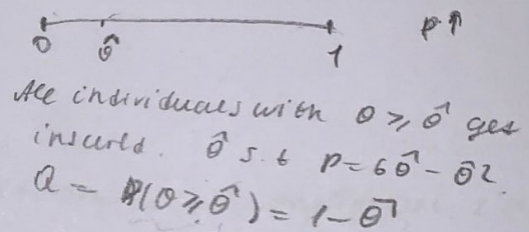 0 θ̂ 1 P↑
All individuals with θ ≥ θ̂ get
insured. θ̂ s.t P = 6θ̂ - θ̂2.
Q = P(θ ≥ θ̂) = 1 - θ̂